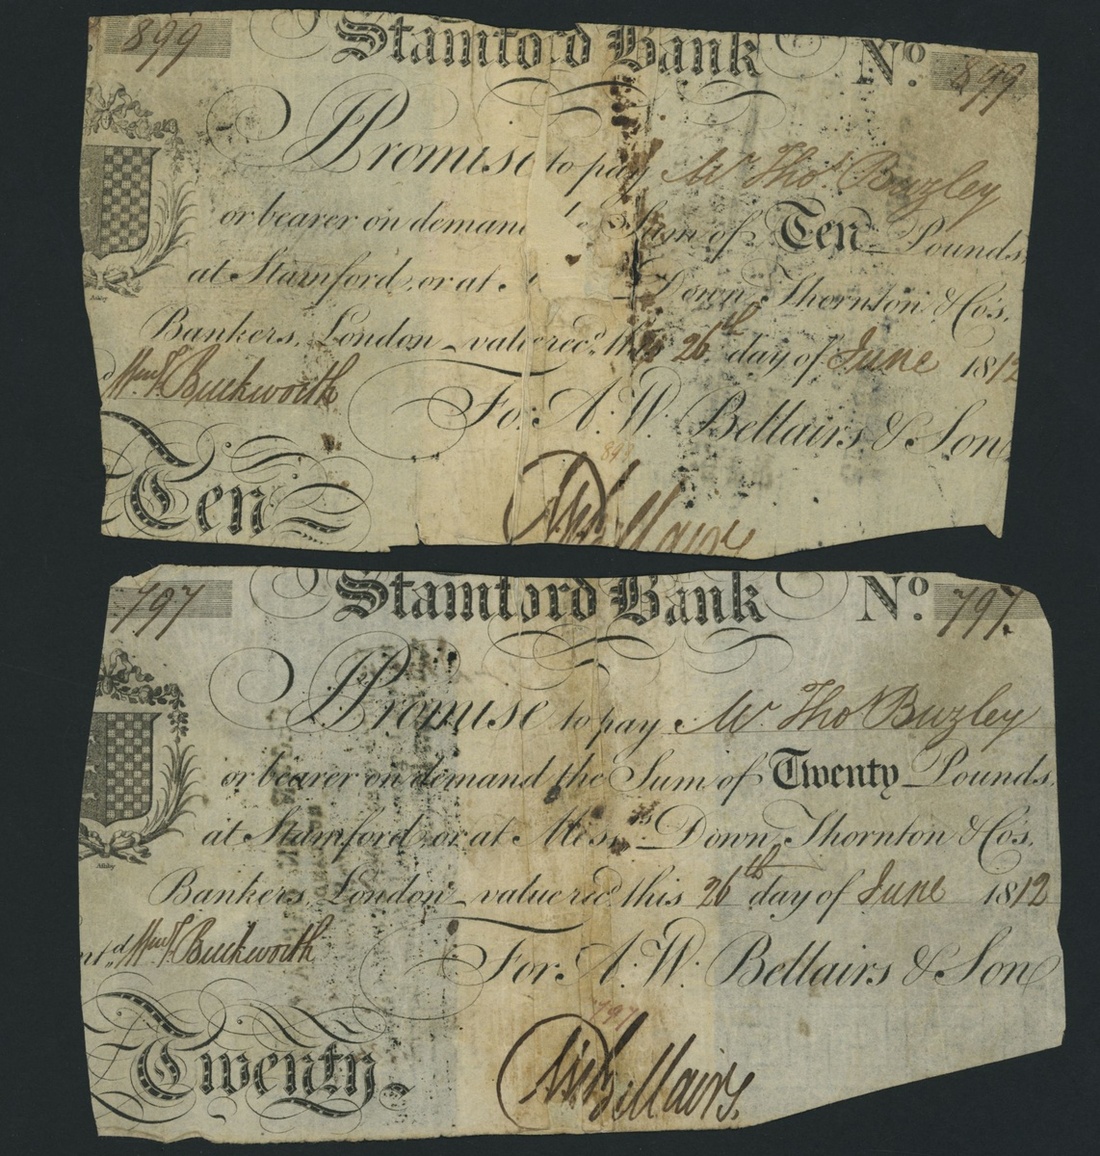 899 Stamford Bank No. 899
I Promise to pay Mr. Thos Buzley
or bearer on demand Sum of Ten Pounds
at Stamford, or at Down, Thornton & Co's,
Bankers, London value recd. this 26th day of June 1812
Hen F. Buckworth
For A. W. Bellairs & Son
898
Ten
797 Stamford Bank No. 797.
I Promise to pay Mr. Thos Buzley
or bearer on demand the Sum of Twenty Pounds
at Stamford, or at Messrs Down, Thornton & Co's,
Bankers, London value recd. this 26th day of June 1812
ntd. Hen F. Buckworth
For A. W. Bellairs & Son
797
Twenty